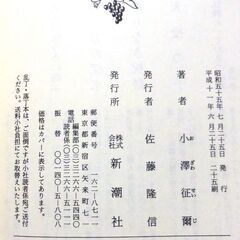 昭和五十五年七月二十五日 発行
平成十一年六月二十五日 二十五刷
著者 小澤征爾
発行者 佐藤隆信
発行所 株式会社 新潮社
郵便番号 一六二―八七一一
東京都新宿区矢来町七一
電話 編集部(〇三)三二六六―五四四〇
読者係(〇三)三二六六―五一一一
振替 〇〇一四〇―五―八〇八
価格はカバーに表示してあります。
乱丁・落丁本は、ご面倒ですが小社読者係宛ご送付
ください。送料小社負担にてお取替えいたします。